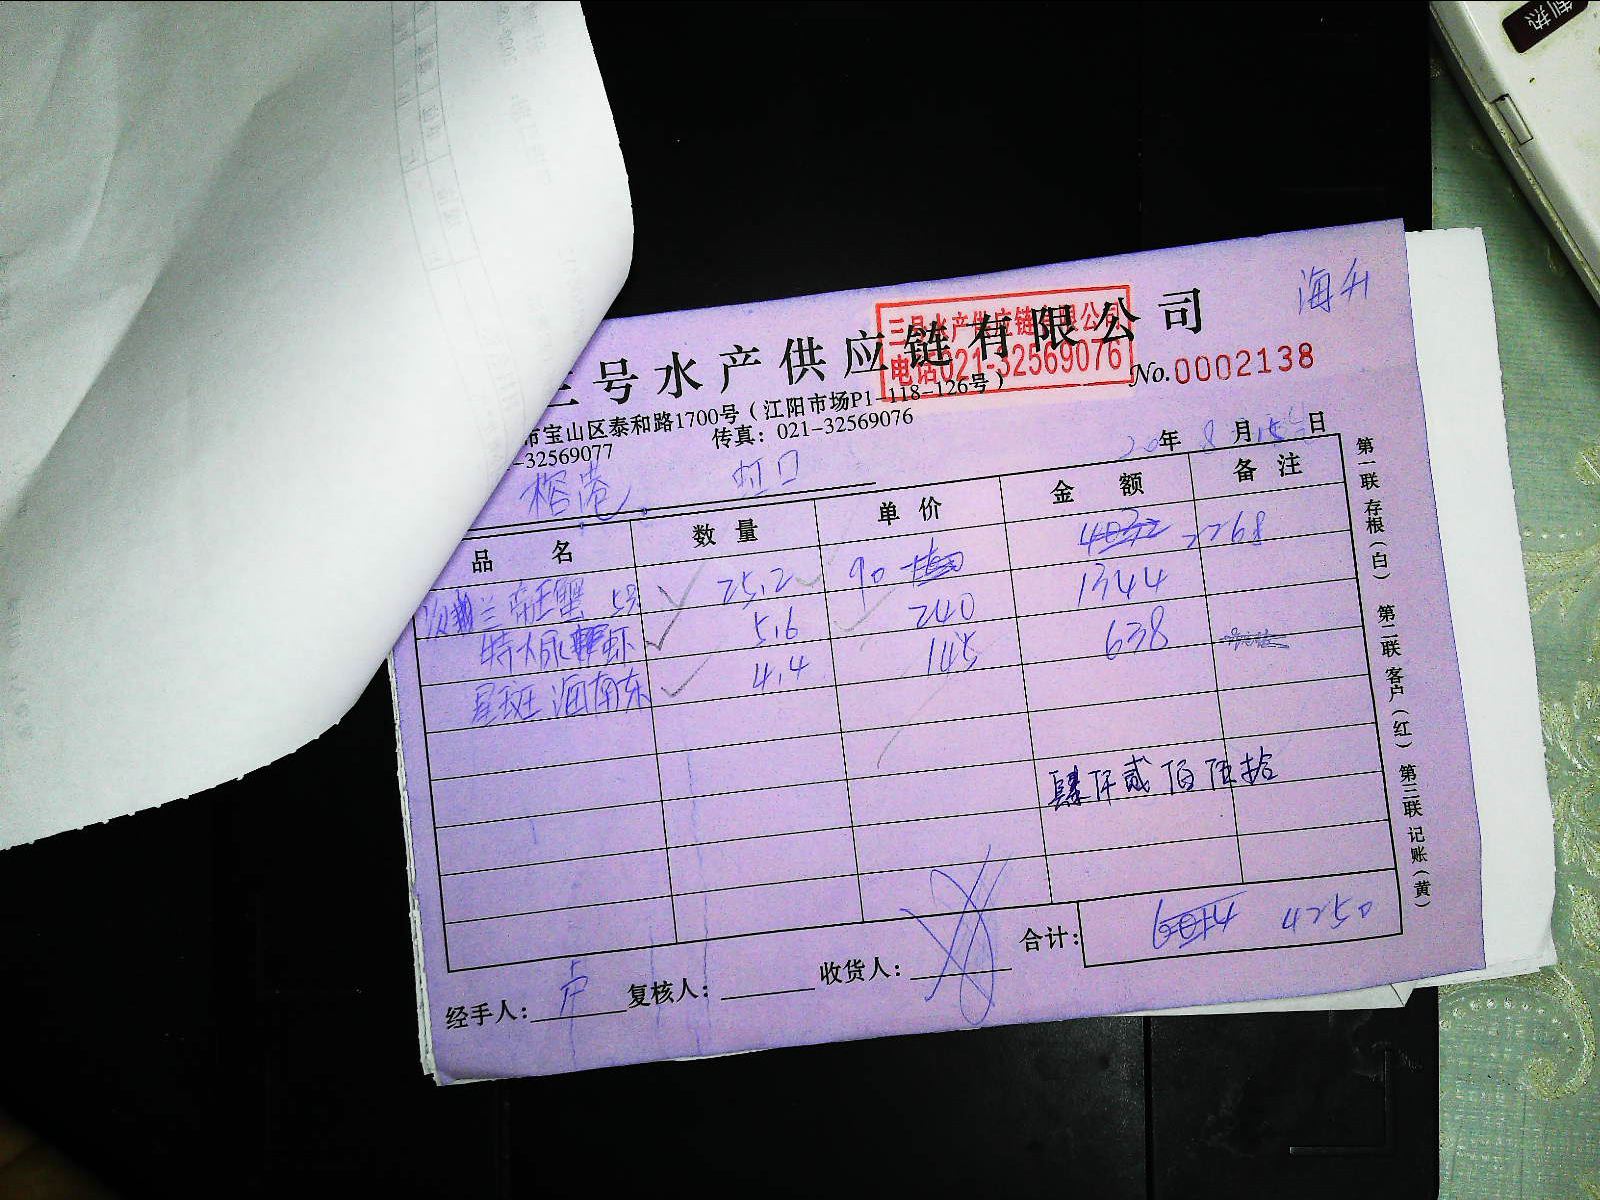 制热
海升
三号水产供应链有限公司
三号水产供应链有限公司
电话021-32569076
No.0002138
市宝山区泰和路1700号（江阳市场P1-118-126号）
-32569077 传真：021-32569076
榕港 虹口
20年 8月15日
品名 数量 单价 金额 备注
兰帝王蟹 25.2 90 2268
特大尿虾 5.6 240 1344
星斑 海南东 4.4 145 638
肆仟贰佰伍拾
合计： 4250
经手人：卢 复核人： 收货人：
第一联 存根（白） 第二联 客户（红） 第三联 记账（黄）